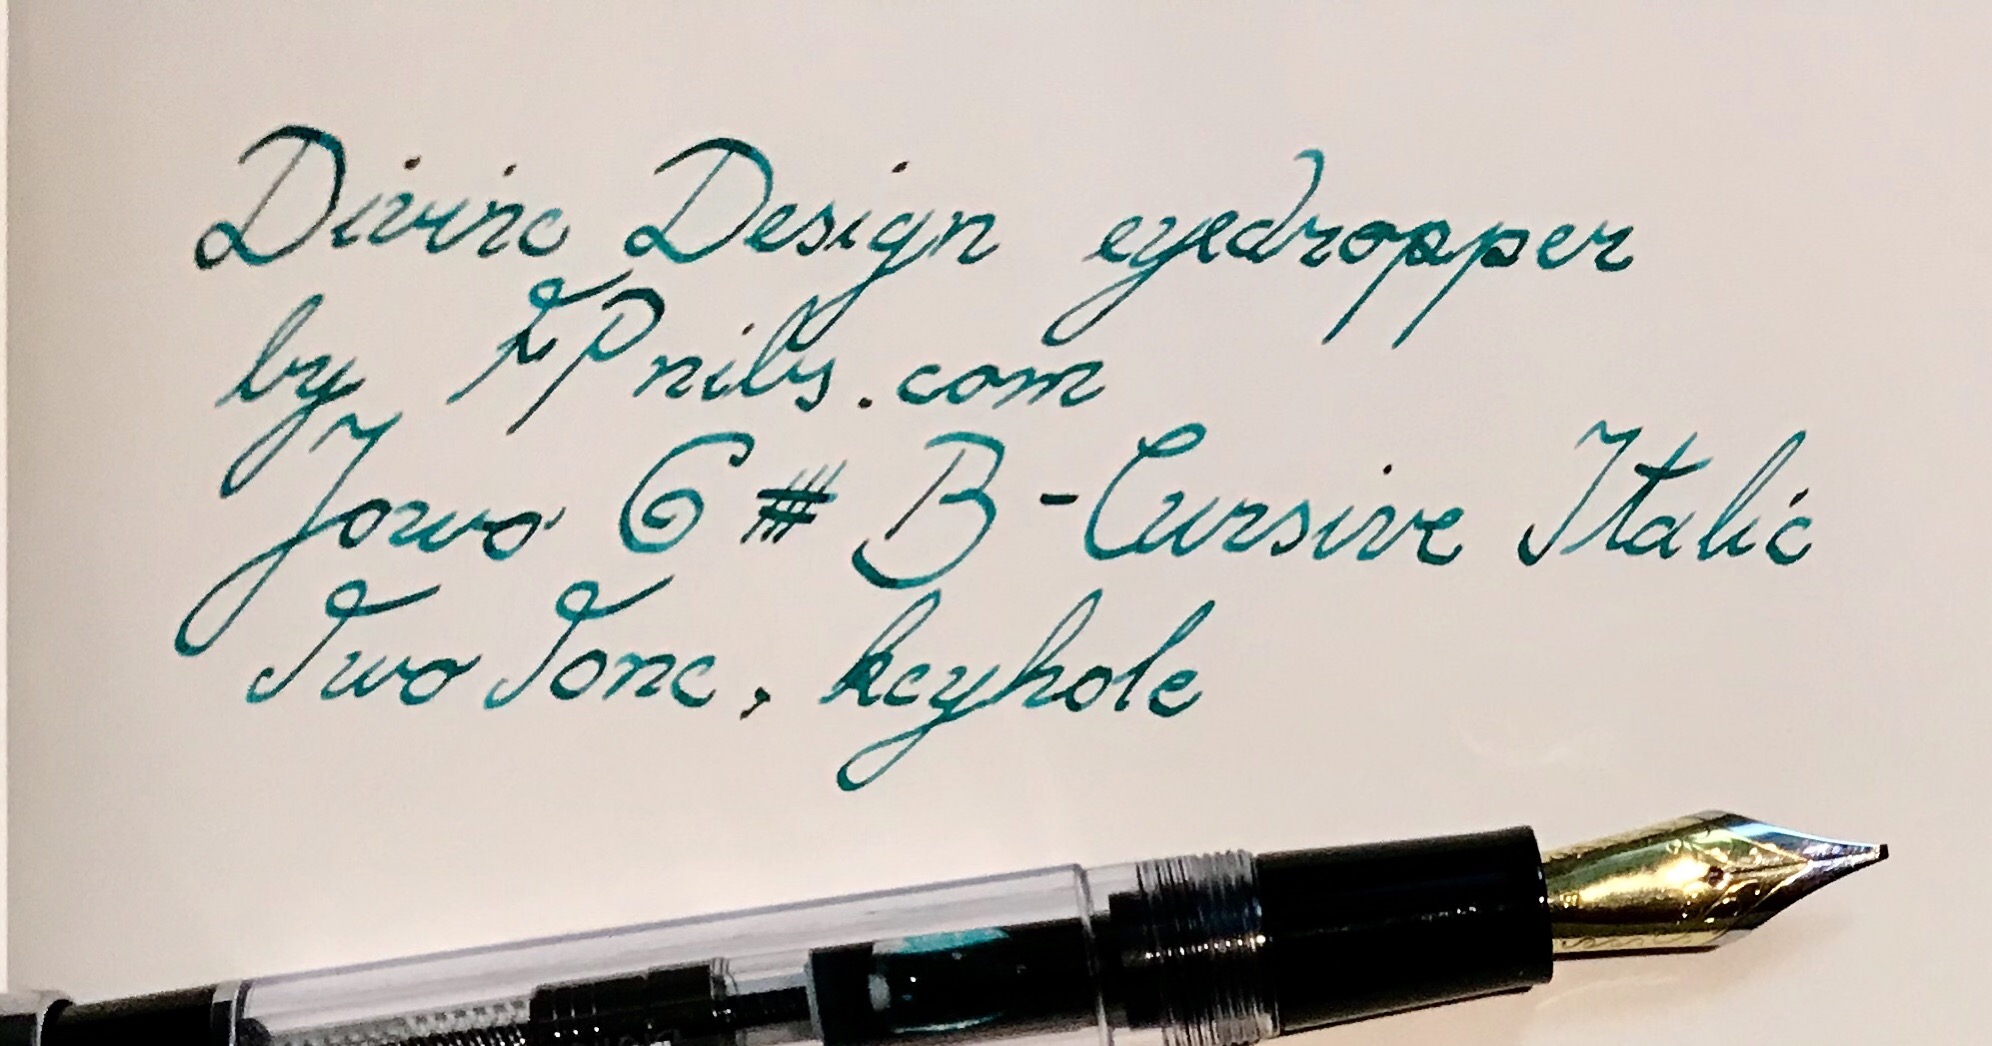 Divine Design eyedropper
by FPnibs.com
Jowo 6# B-Cursive Italic
Two Tone, keyhole